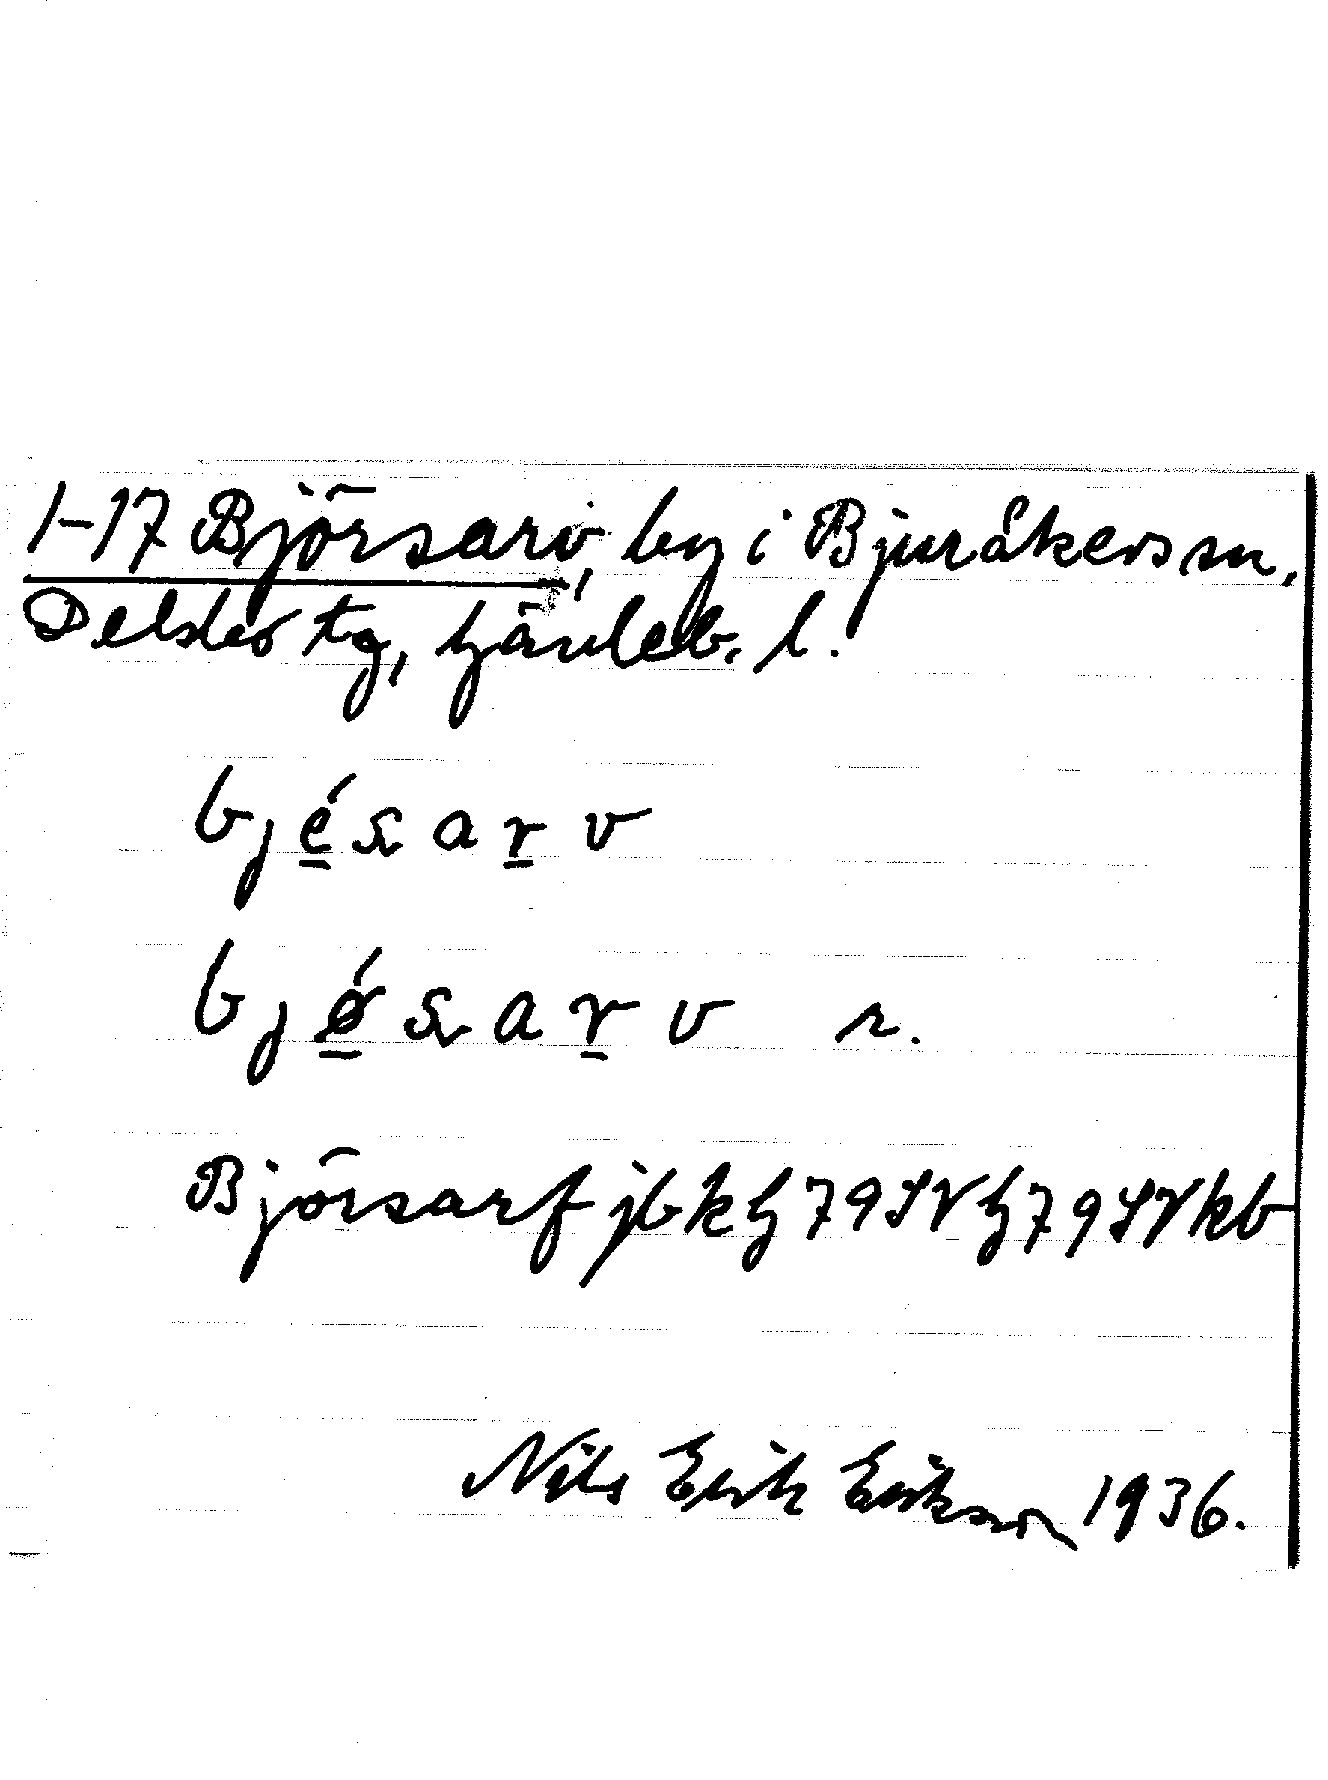 1-17 Björsarv, by i Bjuråkers sn,
Delsbo tg, Gävleb. l.
bjésarv
bjǿsarv r.
Björsarf jb k h 79 IV h 79 IV kb
Nils Erik Eriksson 1936.